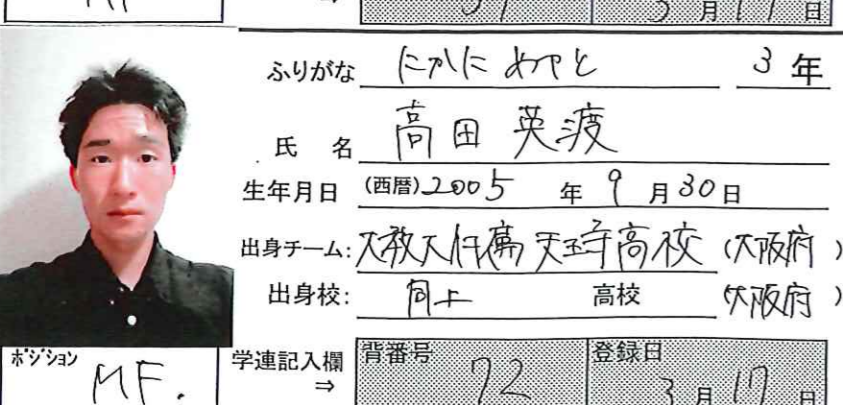 月17日
ふりがな 3年
氏名 高田 英渡
生年月日 (西暦)2005年9月30日
出身チーム: 大教大附属 天王寺高校 (大阪府)
出身校: 同上 高校 (大阪府)
ポジション MF.
学連記入欄 ⇒ 背番号 72 登録日 3月17日